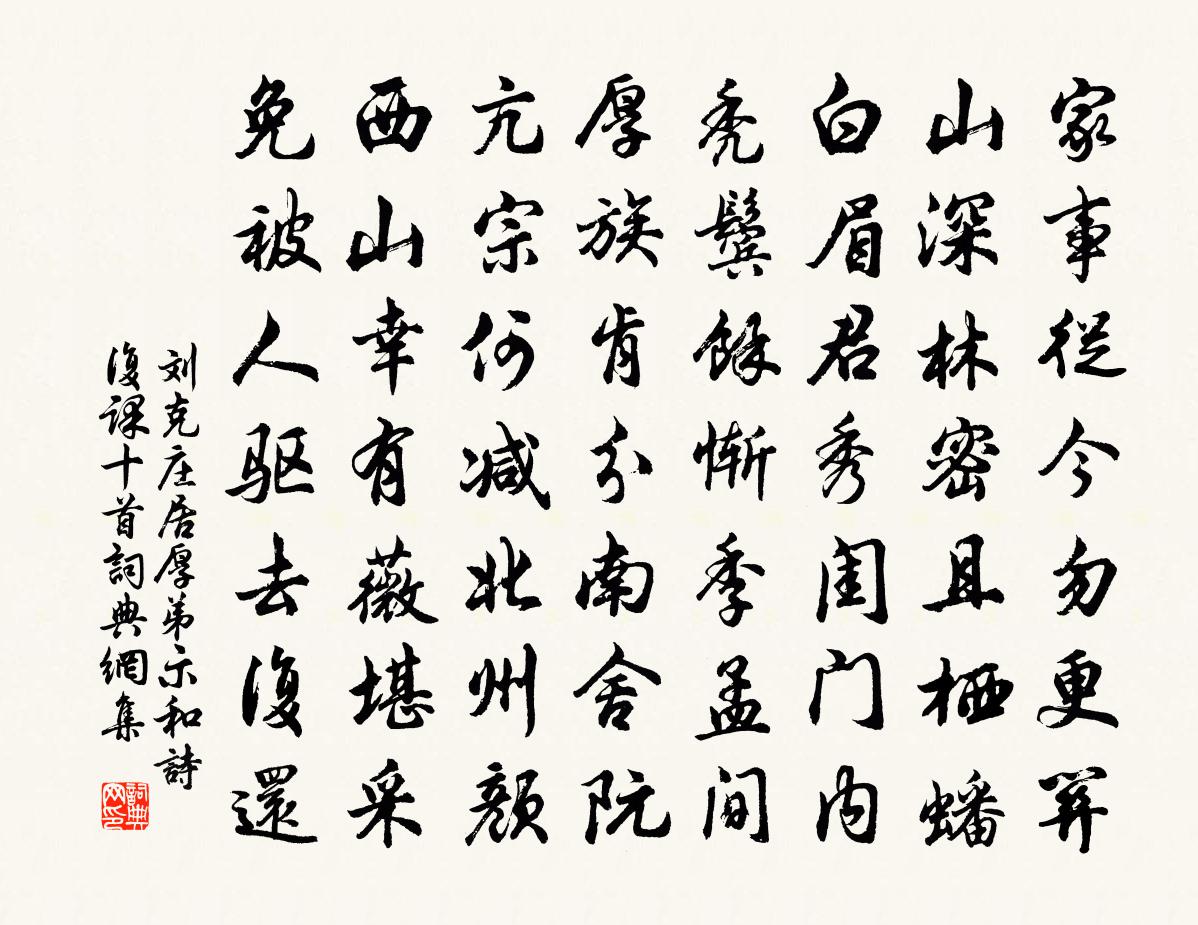 家事從今勿更关
山深林密且栖蟠
白眉君秀闺门内
秃鬓餘慚季孟间
厚族肯分南舍阮
亢宗何减北州颜
西山幸有薇堪采
免被人驱去復還
刘克庄居厚弟示和詩
復課十首詞典網集
詞典网印